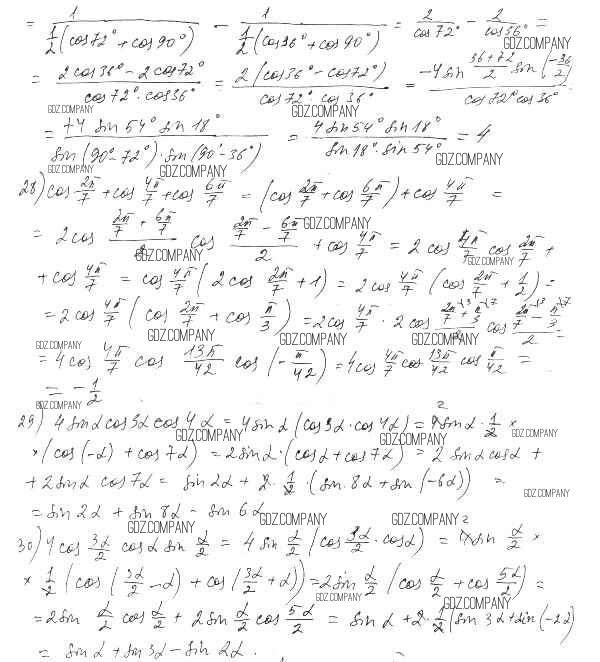 = 1/(1/2(cos72° + cos90°)) - 1/(1/2(cos36° + cos90°)) = 2/cos72° - 2/cos36° =
GDZ.COMPANY GDZ.COMPANY GDZ.COMPANY
= (2cos36° - 2cos72°)/(cos72°·cos36°) = 2(cos36° - cos72°)/(cos72°·cos36°) = -4sin (36+72)/2 sin(-36/2)/(cos72°cos36°)
GDZ.COMPANY GDZ.COMPANY
= +4 sin54° sin18°/(sin(90°-72°)·sin(90°-36°)) = 4sin54° sin18°/(sin18°·sin54°) = 4
GDZ.COMPANY GDZ.COMPANY GDZ.COMPANY
28) cos 2π/7 + cos 4π/7 + cos 6π/7 = (cos 2π/7 + cos 6π/7) + cos 4π/7 =
GDZ.COMPANY
= 2cos (2π/7 + 6π/7)/2 cos (2π/7 - 6π/7)/2 + cos 4π/7 = 2cos 4π/7 cos 2π/7 +
GDZ.COMPANY GDZ.COMPANY
+ cos 4π/7 = cos 4π/7 (2cos 2π/7 + 1) = 2cos 4π/7 (cos 2π/7 + 1/2) =
= 2cos 4π/7 (cos 2π/7 + cos π/3) = 2cos 4π/7 · 2cos (2π/7 + π/3)/2 cos (2π/7 - π/3)/2 =
GDZ.COMPANY GDZ.COMPANY GDZ.COMPANY GDZ.COMPANY
= 4cos 4π/7 cos 13π/42 cos (-π/42) = 4cos 4π/7 cos 13π/42 cos π/42 =
= -1/2
GDZ.COMPANY
29) 4sinα cos3α cos4α = 4sinα (cos3α·cos4α) = 4sinα·1/2 ×
GDZ.COMPANY GDZ.COMPANY GDZ.COMPANY
×(cos(-α) + cos7α) = 2sinα·(cosα + cos7α) = 2 sinα cosα +
+ 2sinα cos7α = sin2α + 2·1/2·(sin 8α + sin(-6α)) =
GDZ.COMPANY
= sin2α + sin8α - sin6α
GDZ.COMPANY GDZ.COMPANY GDZ.COMPANY
30) 4cos 3α/2 cosα sin α/2 = 4sin α/2 (cos 3α/2·cosα) = 4sin α/2 ×
× 1/2 (cos(3α/2 - α) + cos(3α/2 + α)) = 2sin α/2 (cos α/2 + cos 5α/2) =
GDZ.COMPANY GDZ.COMPANY
= 2sin α/2 cos α/2 + 2sin α/2 cos 5α/2 = sinα + 2·1/2(sin3α + sin(-2α)
= sinα + sin3α - sin2α.
GDZ.COMPANY